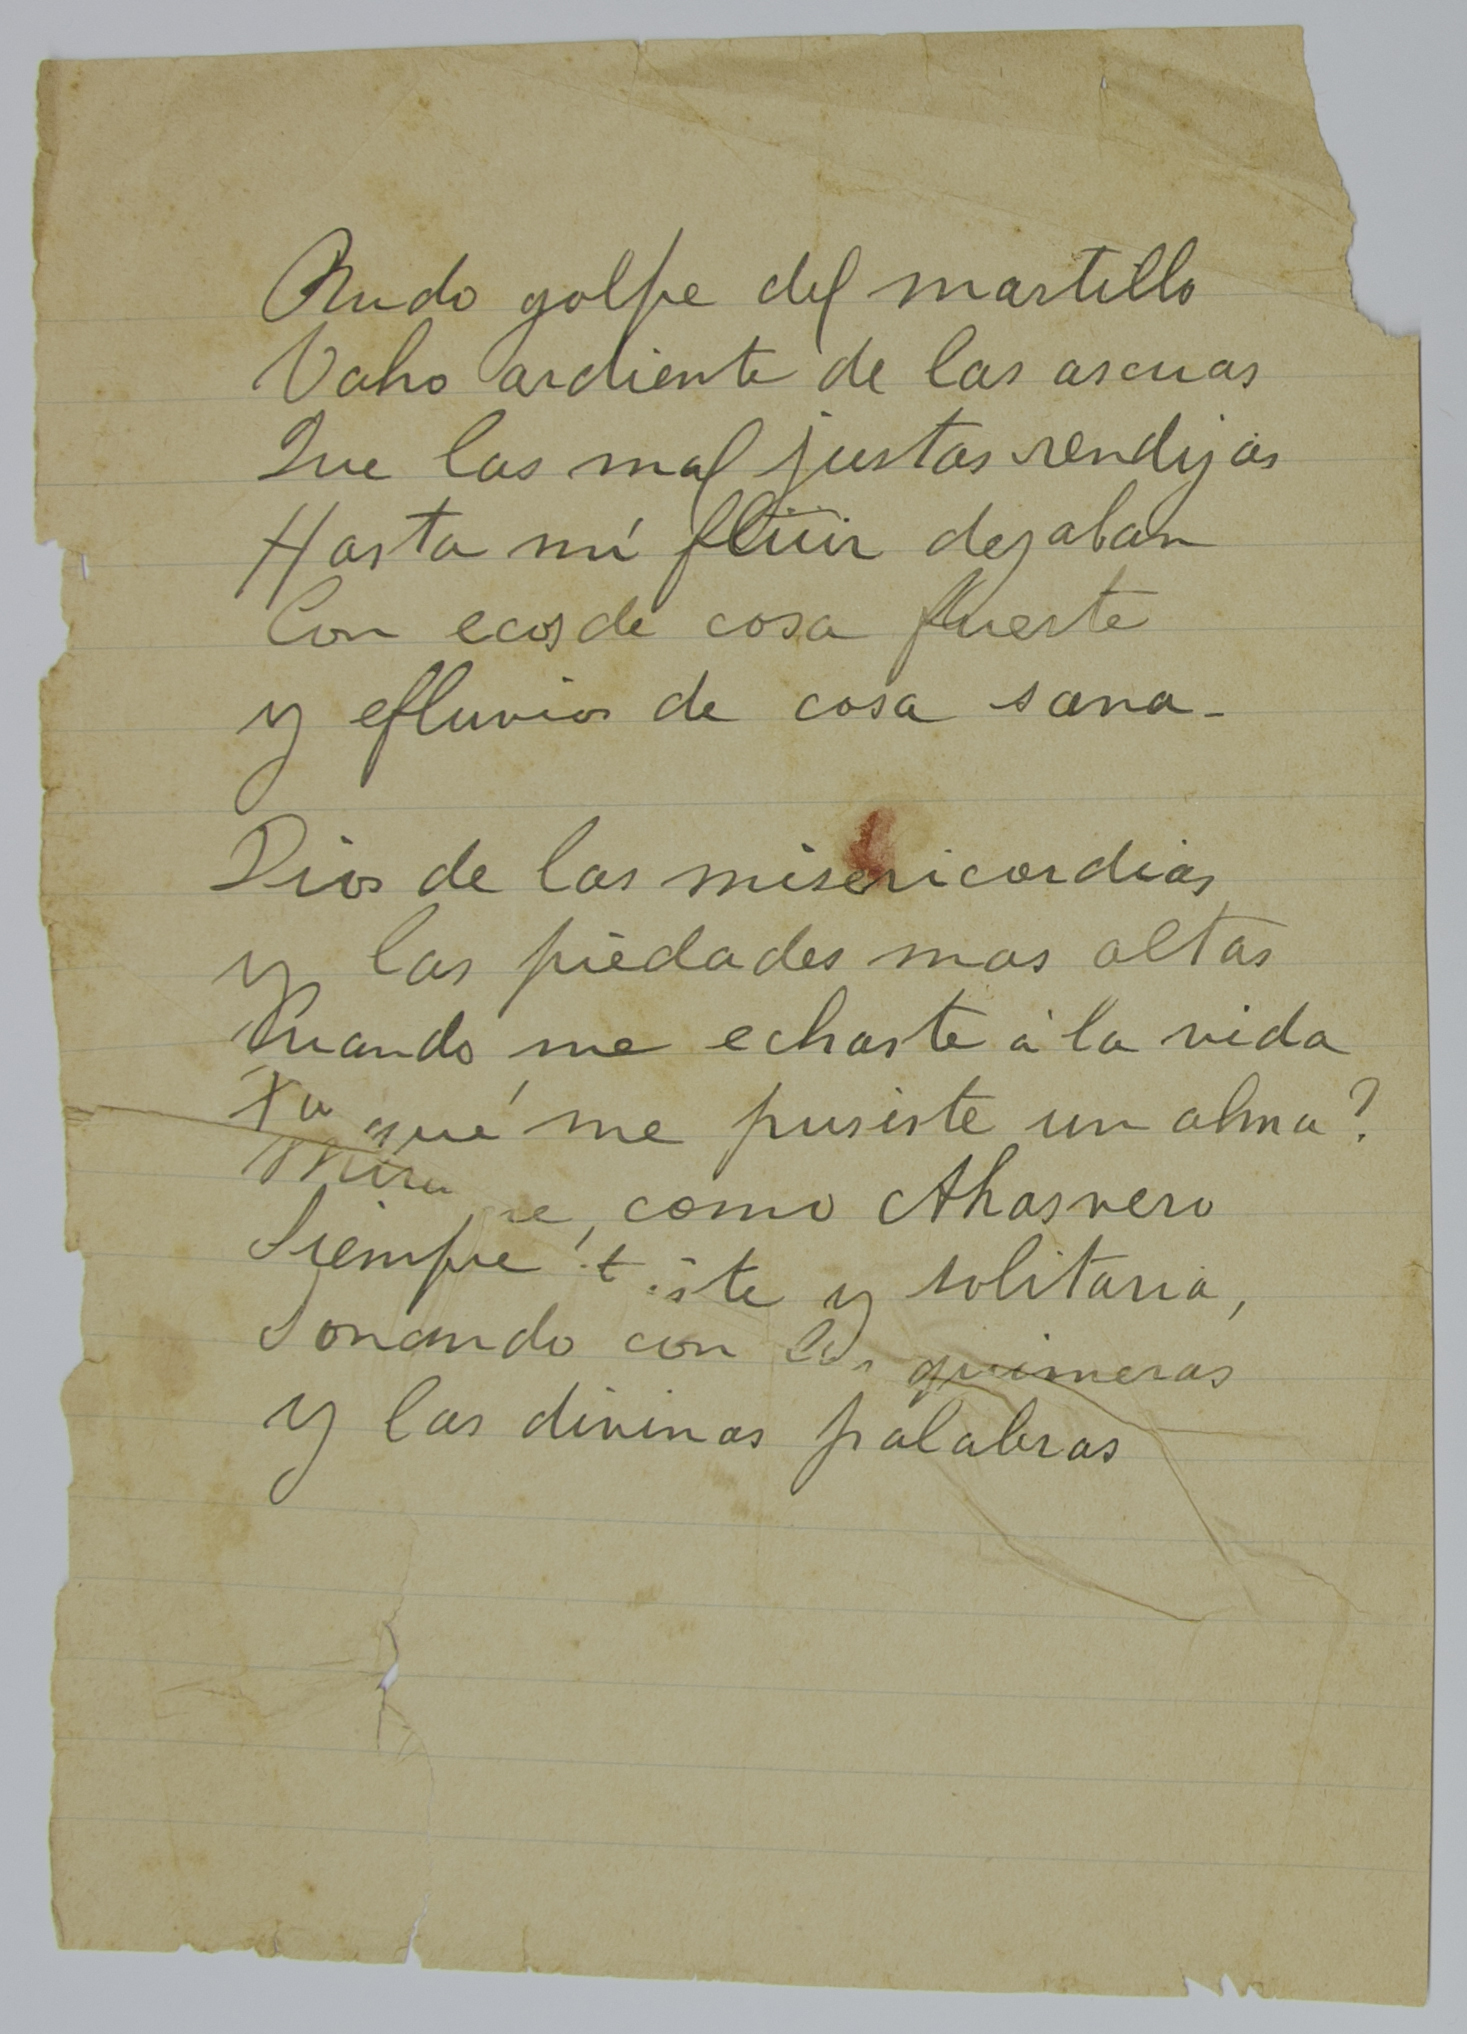 Rudo golpe del martillo
Vaho ardiente de las ascuas
Que las mal justas rendijas
Hasta mí flüir dejaban
Con ecos de cosa fuerte
y efluvios de cosa sana-
Dios de las misericordias
y las piedades mas altas
Cuando me echaste á la vida
Pa qué me pusiste un alma?
Mira me, como Ahasvero
Siempre triste y solitaria,
Sonando con las quimeras
y las divinas palabras